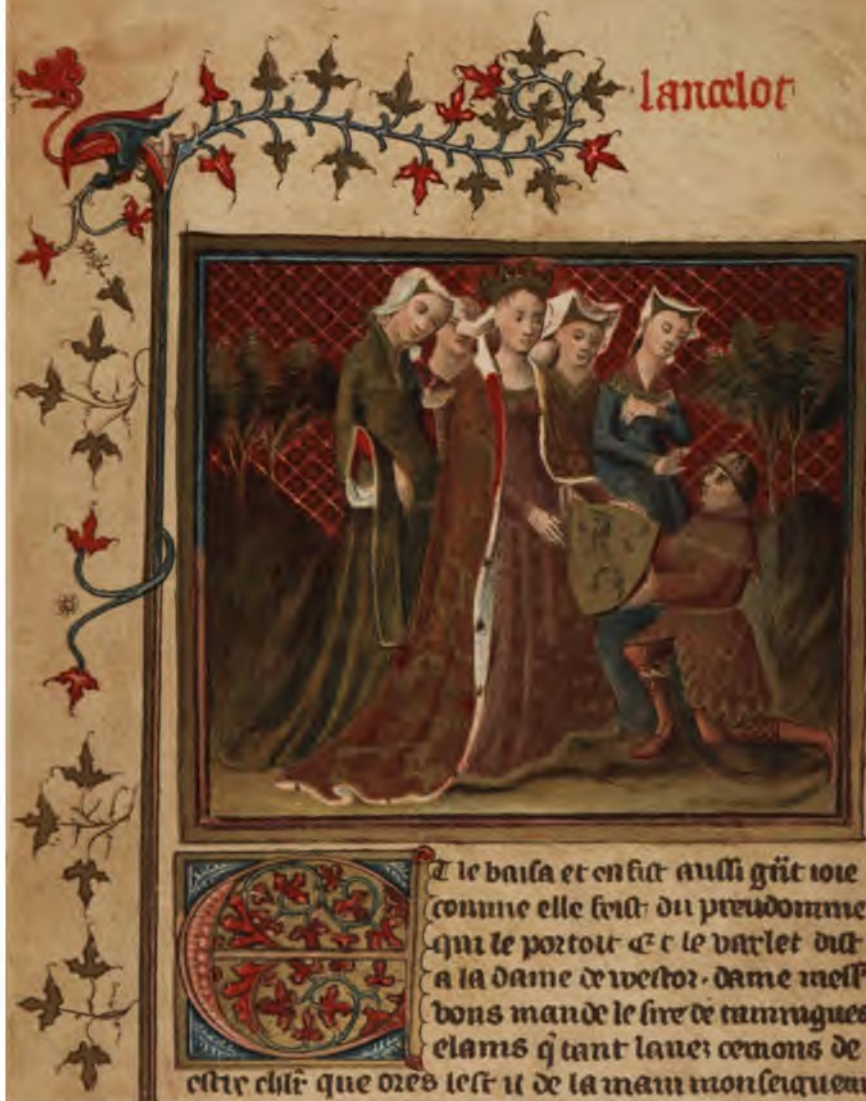 lancelot
Et le baisa et en fist aussi grãt ioie
comme elle feist du preudomme
qui le portoit Et le varlet dist
a la dame de westor· dame mess
vous mande le sire de
clamis q̃ tant lauez cemons de
estre chlr̃ que ores lest il de la main monseigneur